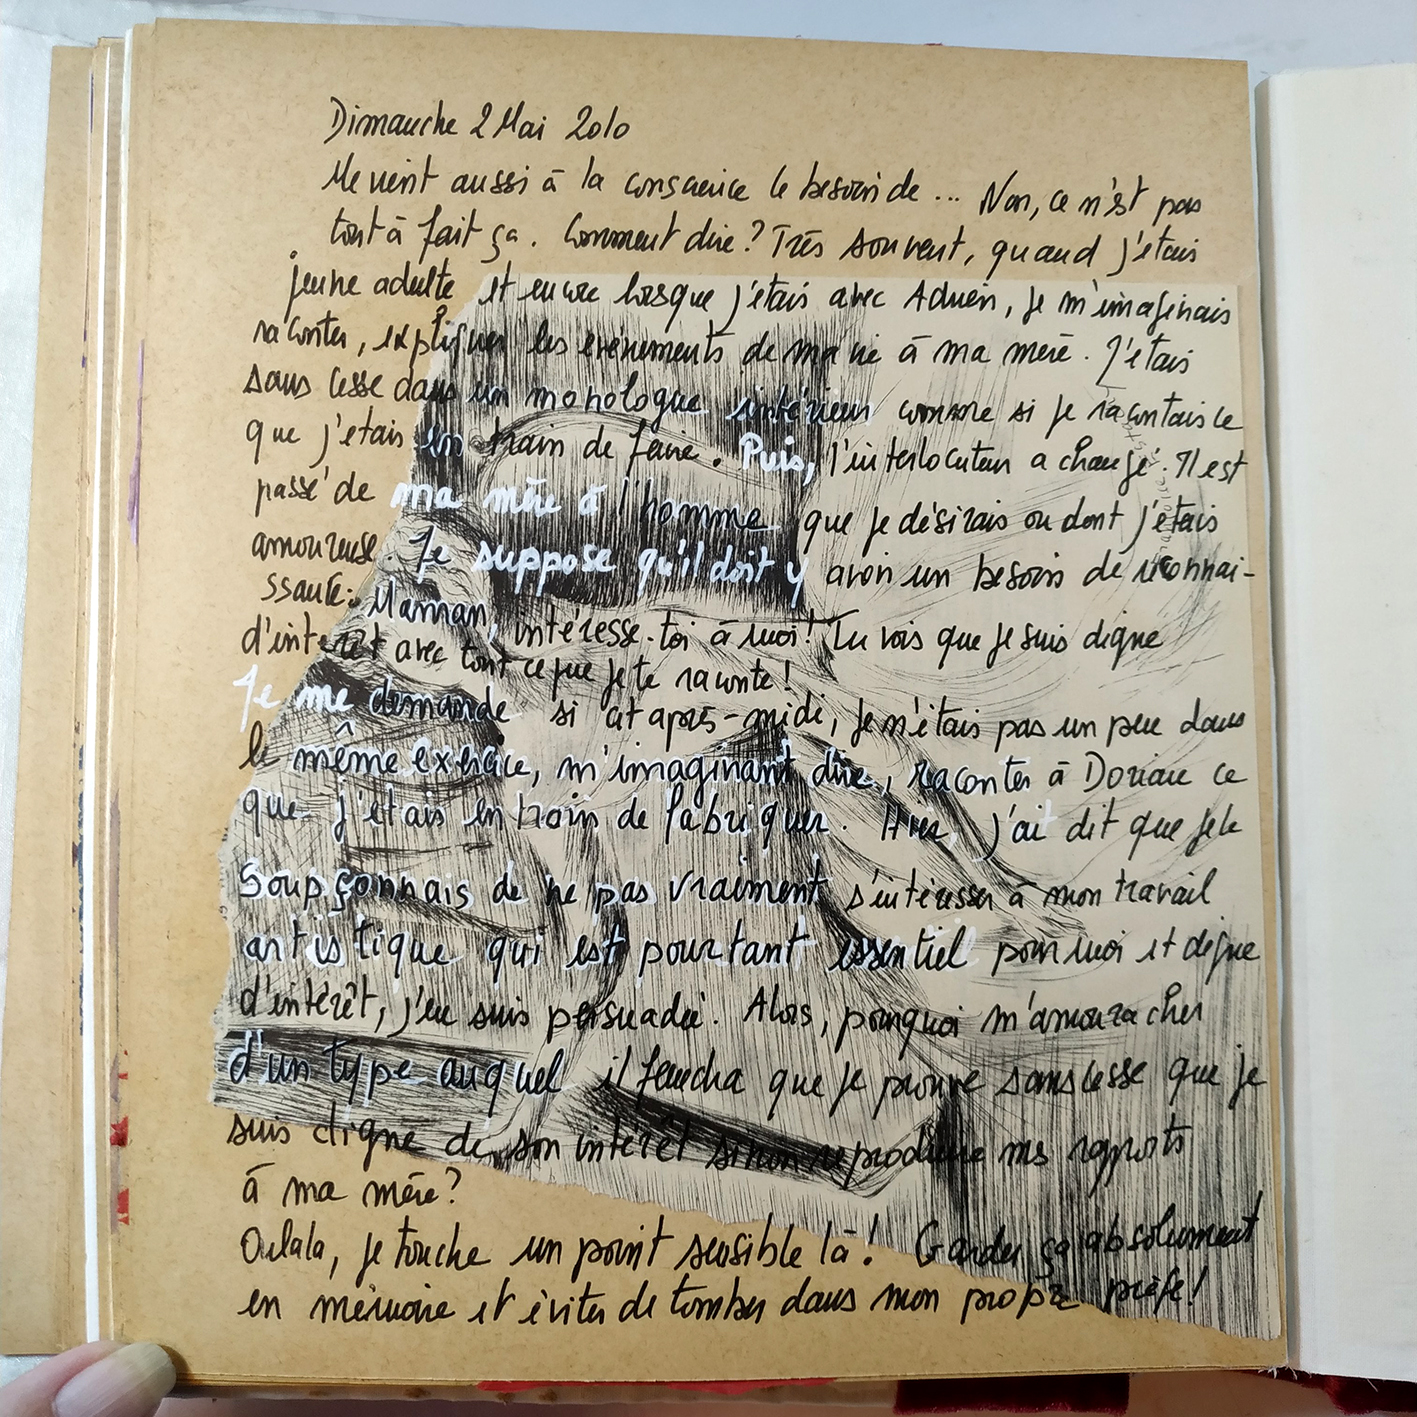 Dimanche 2 Mai 2010
Me vient aussi à la conscience le besoin de ... Non, ce n'est pas
tout à fait ça. Comment dire ? Très souvent, quand j'étais
jeune adulte et encore lorsque j'étais avec Adrien, je m'imaginais
raconter, expliquer les évènements de ma vie à ma mère. J'étais
sans cesse dans un monologue intérieur comme si je racontais ce
que j'étais en train de faire. Puis, l'interlocuteur a changé. Il est
passé de ma mère à l'homme que je désirais ou dont j'étais
amoureuse. Je suppose qu'il doit y avoir un besoin de reconnai-
ssance. Maman, intéresse-toi à moi ! Tu vois que je suis digne
d'intérêt avec tout ce que je te raconte !
Je me demande si cet après-midi, je n'étais pas un peu dans
le même exercice, m'imaginant dire, raconter à Doriane ce
que j'étais en train de fabriquer. Hier, j'ai dit que je le
soupçonnais de ne pas vraiment s'intéresser à mon travail
artistique qui est pourtant essentiel pour moi et digne
d'intérêt, j'en suis persuadée. Alors, pourquoi m'amouracher
d'un type auquel il faudra que je prouve sans cesse que je
suis digne de son intérêt sinon reproduire mes rapports
à ma mère ?
Oulala, je touche un point sensible là ! Garder ça absolument
en mémoire et éviter de tomber dans mon propre piège !